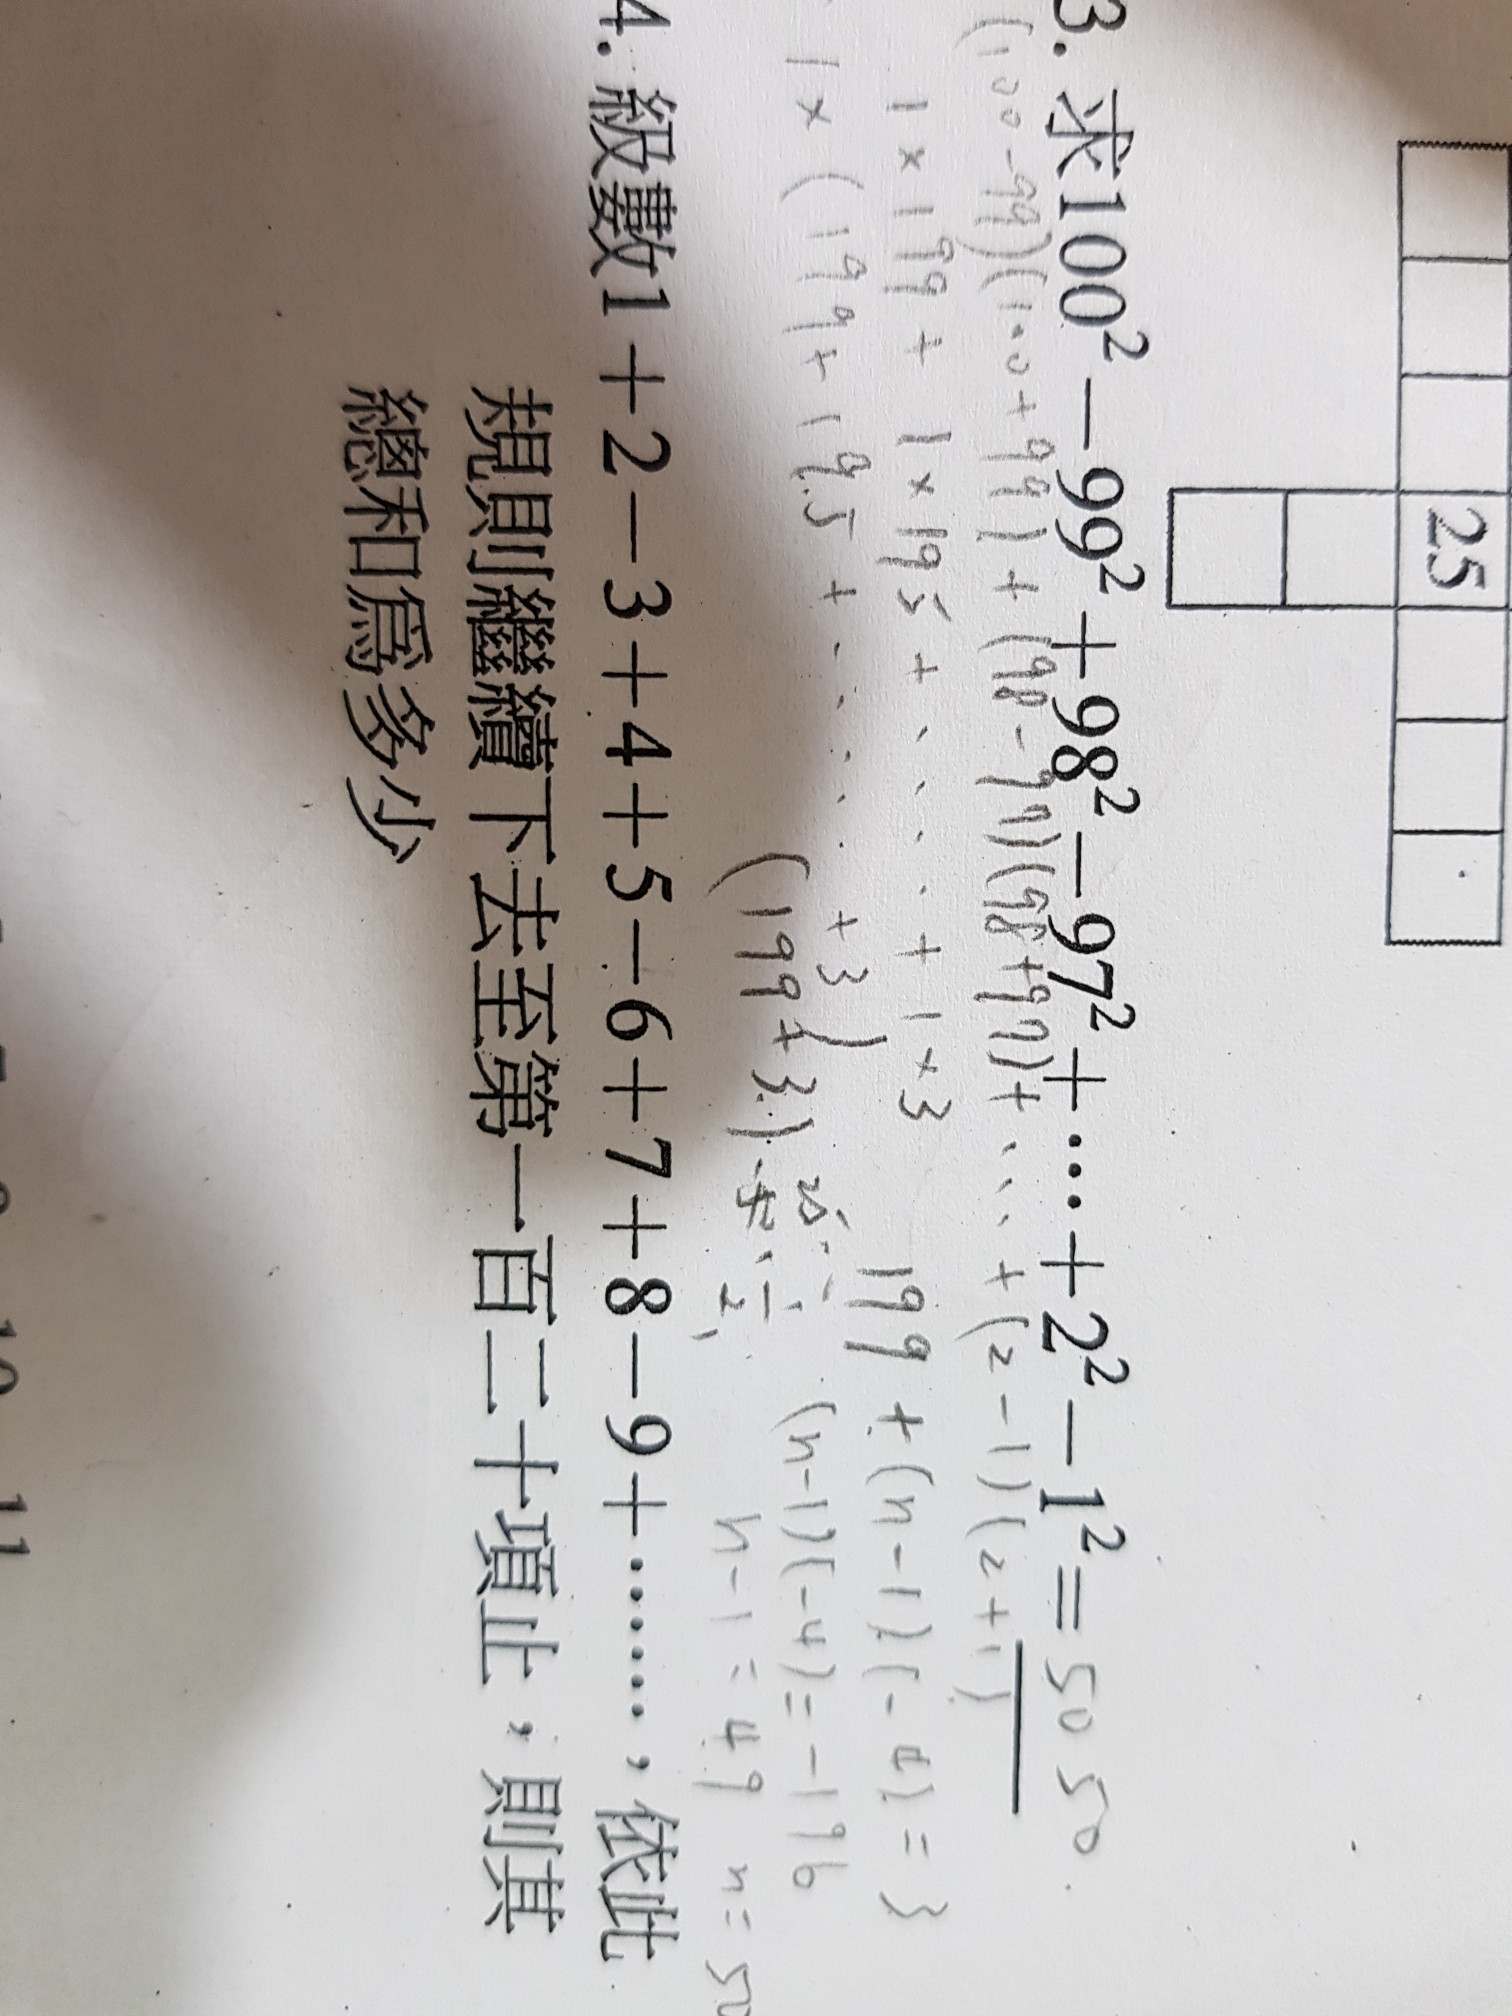 25
3. 求100² - 99² + 98² - 97² + … + 2² - 1² = 5050.
(100-99)(100+99)+(98-97)(98+97)+...+(2-1)(2+1)
1×199 + 1×195 + ..... + 1×3
199+(n-1)(-4)=3
1×(199+195+.....+3)
(n-1)(-4)=-196
(199+3)
n-1=49 n=50
4. 級數1 + 2 - 3 + 4 + 5 - 6 + 7 + 8 - 9 + ……，依此
規則繼續下去至第一百二十項止，則其
總和為多少
10 11